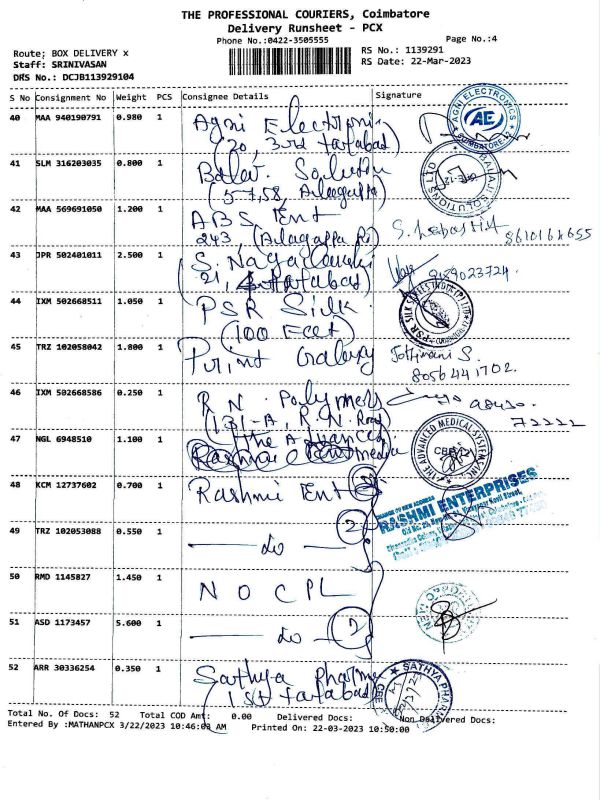 THE PROFESSIONAL COURIERS, Coimbatore
Delivery Runsheet - PCX
Phone No.:0422-3505555
Page No.:4
Route; BOX DELIVERY x
Staff: SRINIVASAN
DRS No.: DCJB113929104
RS No.: 1139291
RS Date: 22-Mar-2023
S No Consignment No Weight PCS Consignee Details Signature
40 MAA 940190791 0.980 1 Agni Electronik
(20, 3rd tatabad)
AGNI ELECTRONICS
AE
COIMBATORE
41 SLM 316203035 0.800 1 Balaji Solution
(57,58, Alagappa)
BALAJI SOLUTIONS LTD
42 MAA 569691050 1.200 1 ABS Ent
243, (Alagappa Rd)
43 JPR 502401011 2.500 1 S. Nagal
21, tatabad)
9129023724
44 IXM 502668511 1.050 1 PSR Silk
(100 Feet)
PSR SILK
45 TRZ 102058042 1.800 1 Print Galaxy
Jothimani S.
8056441702.
46 IXM 502668586 0.250 1 R. N. Polymers
(131-A, R.N. Road)
98430.
72222
47 NGL 6948510 1.100 1 (The Advanced
THE ADVANCED MEDICAL SYSTEMS
48 KCM 12737602 0.700 1 Rashmi Ent
CHANGE OF NEW ADDRESS
RASHMI ENTERPRISES
49 TRZ 102053088 0.550 1 — do — 2
50 RMD 1145827 1.450 1 NOCPL
51 ASD 1173457 5.600 1 — do —
52 ARR 30336254 0.350 1 Sathya Pharma
1st tatabad)
SATHYA PHARMA
CBE
Total No. Of Docs: 52 Total COD Amt: 0.00 Delivered Docs: Non Delivered Docs:
Entered By :MATHANPCX 3/22/2023 10:46:03 AM Printed On: 22-03-2023 10:50:00